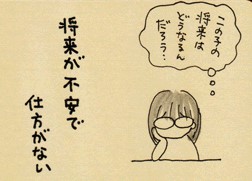 この子の
将来は
どうなるん
だろう…
将来が不安で
仕方がない